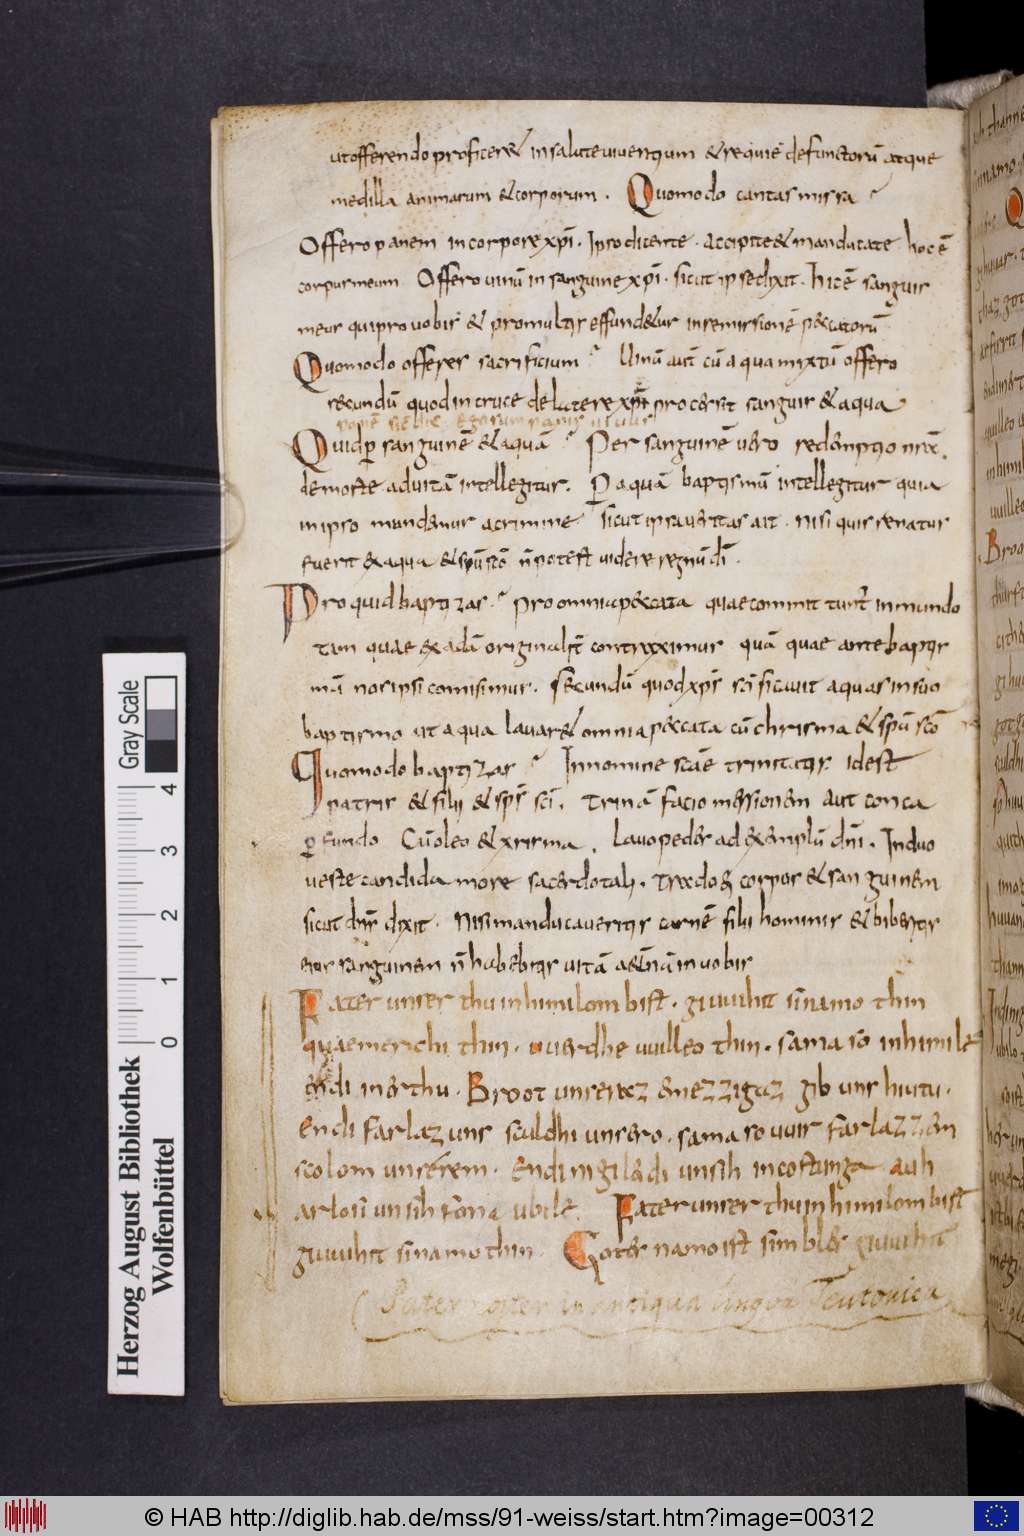 ut offerendo proficeret in salute viventium & requie defunctorũ atque
medilla animarum & corporum . Quomodo cantas missa ?
Offero panem in corpore xpi̅ . Ipso dicente . accipite & manducate hoc ẽ
corpus meum Offero vinũ in sanguine xpi̅ . sicut ipse dixit . hic ẽ sanguis
meus qui pro vobis & pro multis effundetur in remissionẽ peccatorũ
Quomodo offeres sacrificium ? Vinũ aut̅ cũ aqua mixtũ offero
secundũ quod in cruce de latere xpi̅ processit sanguis & aqua
Quid p̱ sanguinẽ & aquã ? Per sanguinẽ vero redemptio nr̅a
de morte ad vitã intellegitur . P̱ aquã baptismũ intellegitur quia
in ipso mundemur a crimine sicut ipsa veritas ait . nisi quis renatus
fuerit ex aqua & spũ sc̅o n̅ potest videre regnũ di̅ .
Pro quid baptizas ? pro omnia peccata quae committunt̅ in mundo
tam quae ex adã originalit̅ contraximus quã quae ante baptis
mã nos ipsi comisimus . secundũ quod xps̅ sc̅ificavit aquas in suo
baptismo ut aqua lavaret omnia peccata cũ chrisma & spũ sc̅o
Quomodo baptizas ? In nomine sc̅ae trinitatis idest
patris & filii & sps̅ sc̅i . trinã facio mersionem aut conca
p̱fundo Cũ oleo & xrisma . Lavo pedes ad exemplũ dni̅ . Induo
veste candida more sacerdotali . trado ei corpus & sanguinem
sicut dns̅ dixit . nisi manducaveritis carnẽ filii hominis & biberitis
eius sanguinem n̅ habebitis vitã aeternã in vobis
Fater unser thu in himilom bist . giuuihit si namo thin
quaeme richi thin . uuerdhe uuilleo thin . sama so in himile
endi in erthu . Broot unseraz emezzigaz gib uns hiutu .
Endi farlaz uns sculdhi unsero . sama so uuir farlazzem
scolom unserem . Endi ni gileidi unsih in costunga auh
arlosi unsih fona ubile Fater unser thu in himilom bist
giuuihit si namo thin Gotes namo ist simbles giuuihit
Pater noster in antiqua lingua Teutonica
Herzog August Bibliothek
Wolfenbüttel
0 1 2 3 4
Gray Scale
© HAB http://diglib.hab.de/mss/91-weiss/start.htm?image=00312